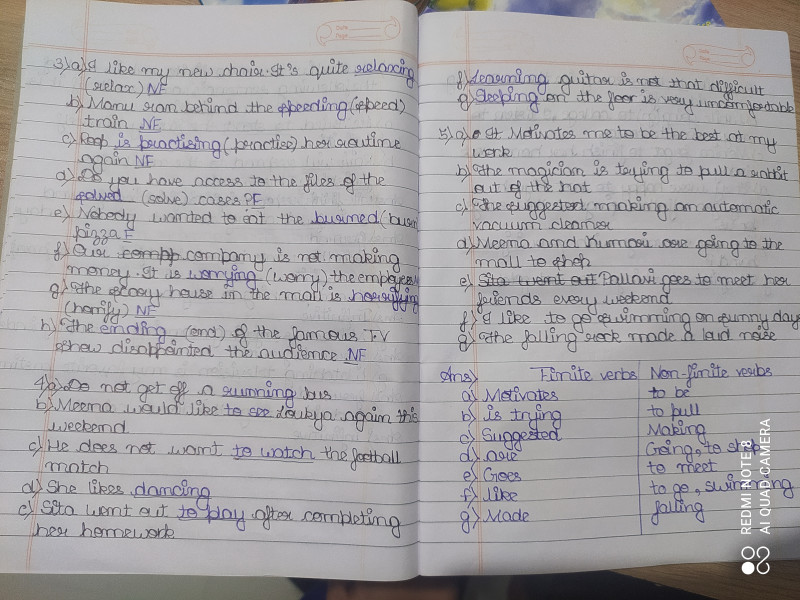 3) a) I like my new chair. It's quite relaxing
(relax) NF
b) Manu ran behind the speeding (speed)
train NF
c) is practising (practise) her routine
again NF
d) Do you have access to the files of the
solved (solve) cases PF
e) Nobody wanted to eat the burned (burn
pizza F
f) Our company is not making
money. It is worrying (worry) the employees
g) The scary house in the mall is horrifying
(horrify) NF
h) The ending (end) of the famous TV
show disappointed the audience NF
4) a) Do not get off a running bus
b) Meema would like to see again this
weekend
c) He does not want to watch the football
match
d) She likes dancing
e) Sita went out to play after completing
her homework
Date
Page
f) Learning guitar is not that difficult
g) Sleeping on the floor is very uncomfortable
5) a) It Motivates me to be the best at my
work
b) The magician is trying to pull a rabbit
out of the hat
c) She suggested making an automatic
vacuum cleaner
d) Meema and Kumari are going to the
mall to shop
e) Sita went out Pallavi goes to meet her
friends every weekend
f) I like to go swimming on sunny day
g) The falling rock made a loud noise
Ans) Finite verbs Non-finite verbs
a) Motivates to be
b) is trying to pull
c) Suggested Making
d) are Going, to shop
e) Goes to meet
f) like to go, swimming
g) Made falling
REDMI NOTE 8
AI QUAD CAMERA